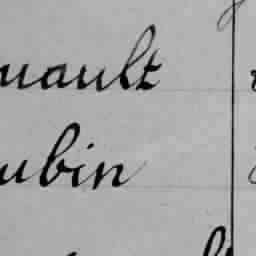 uault
ubin